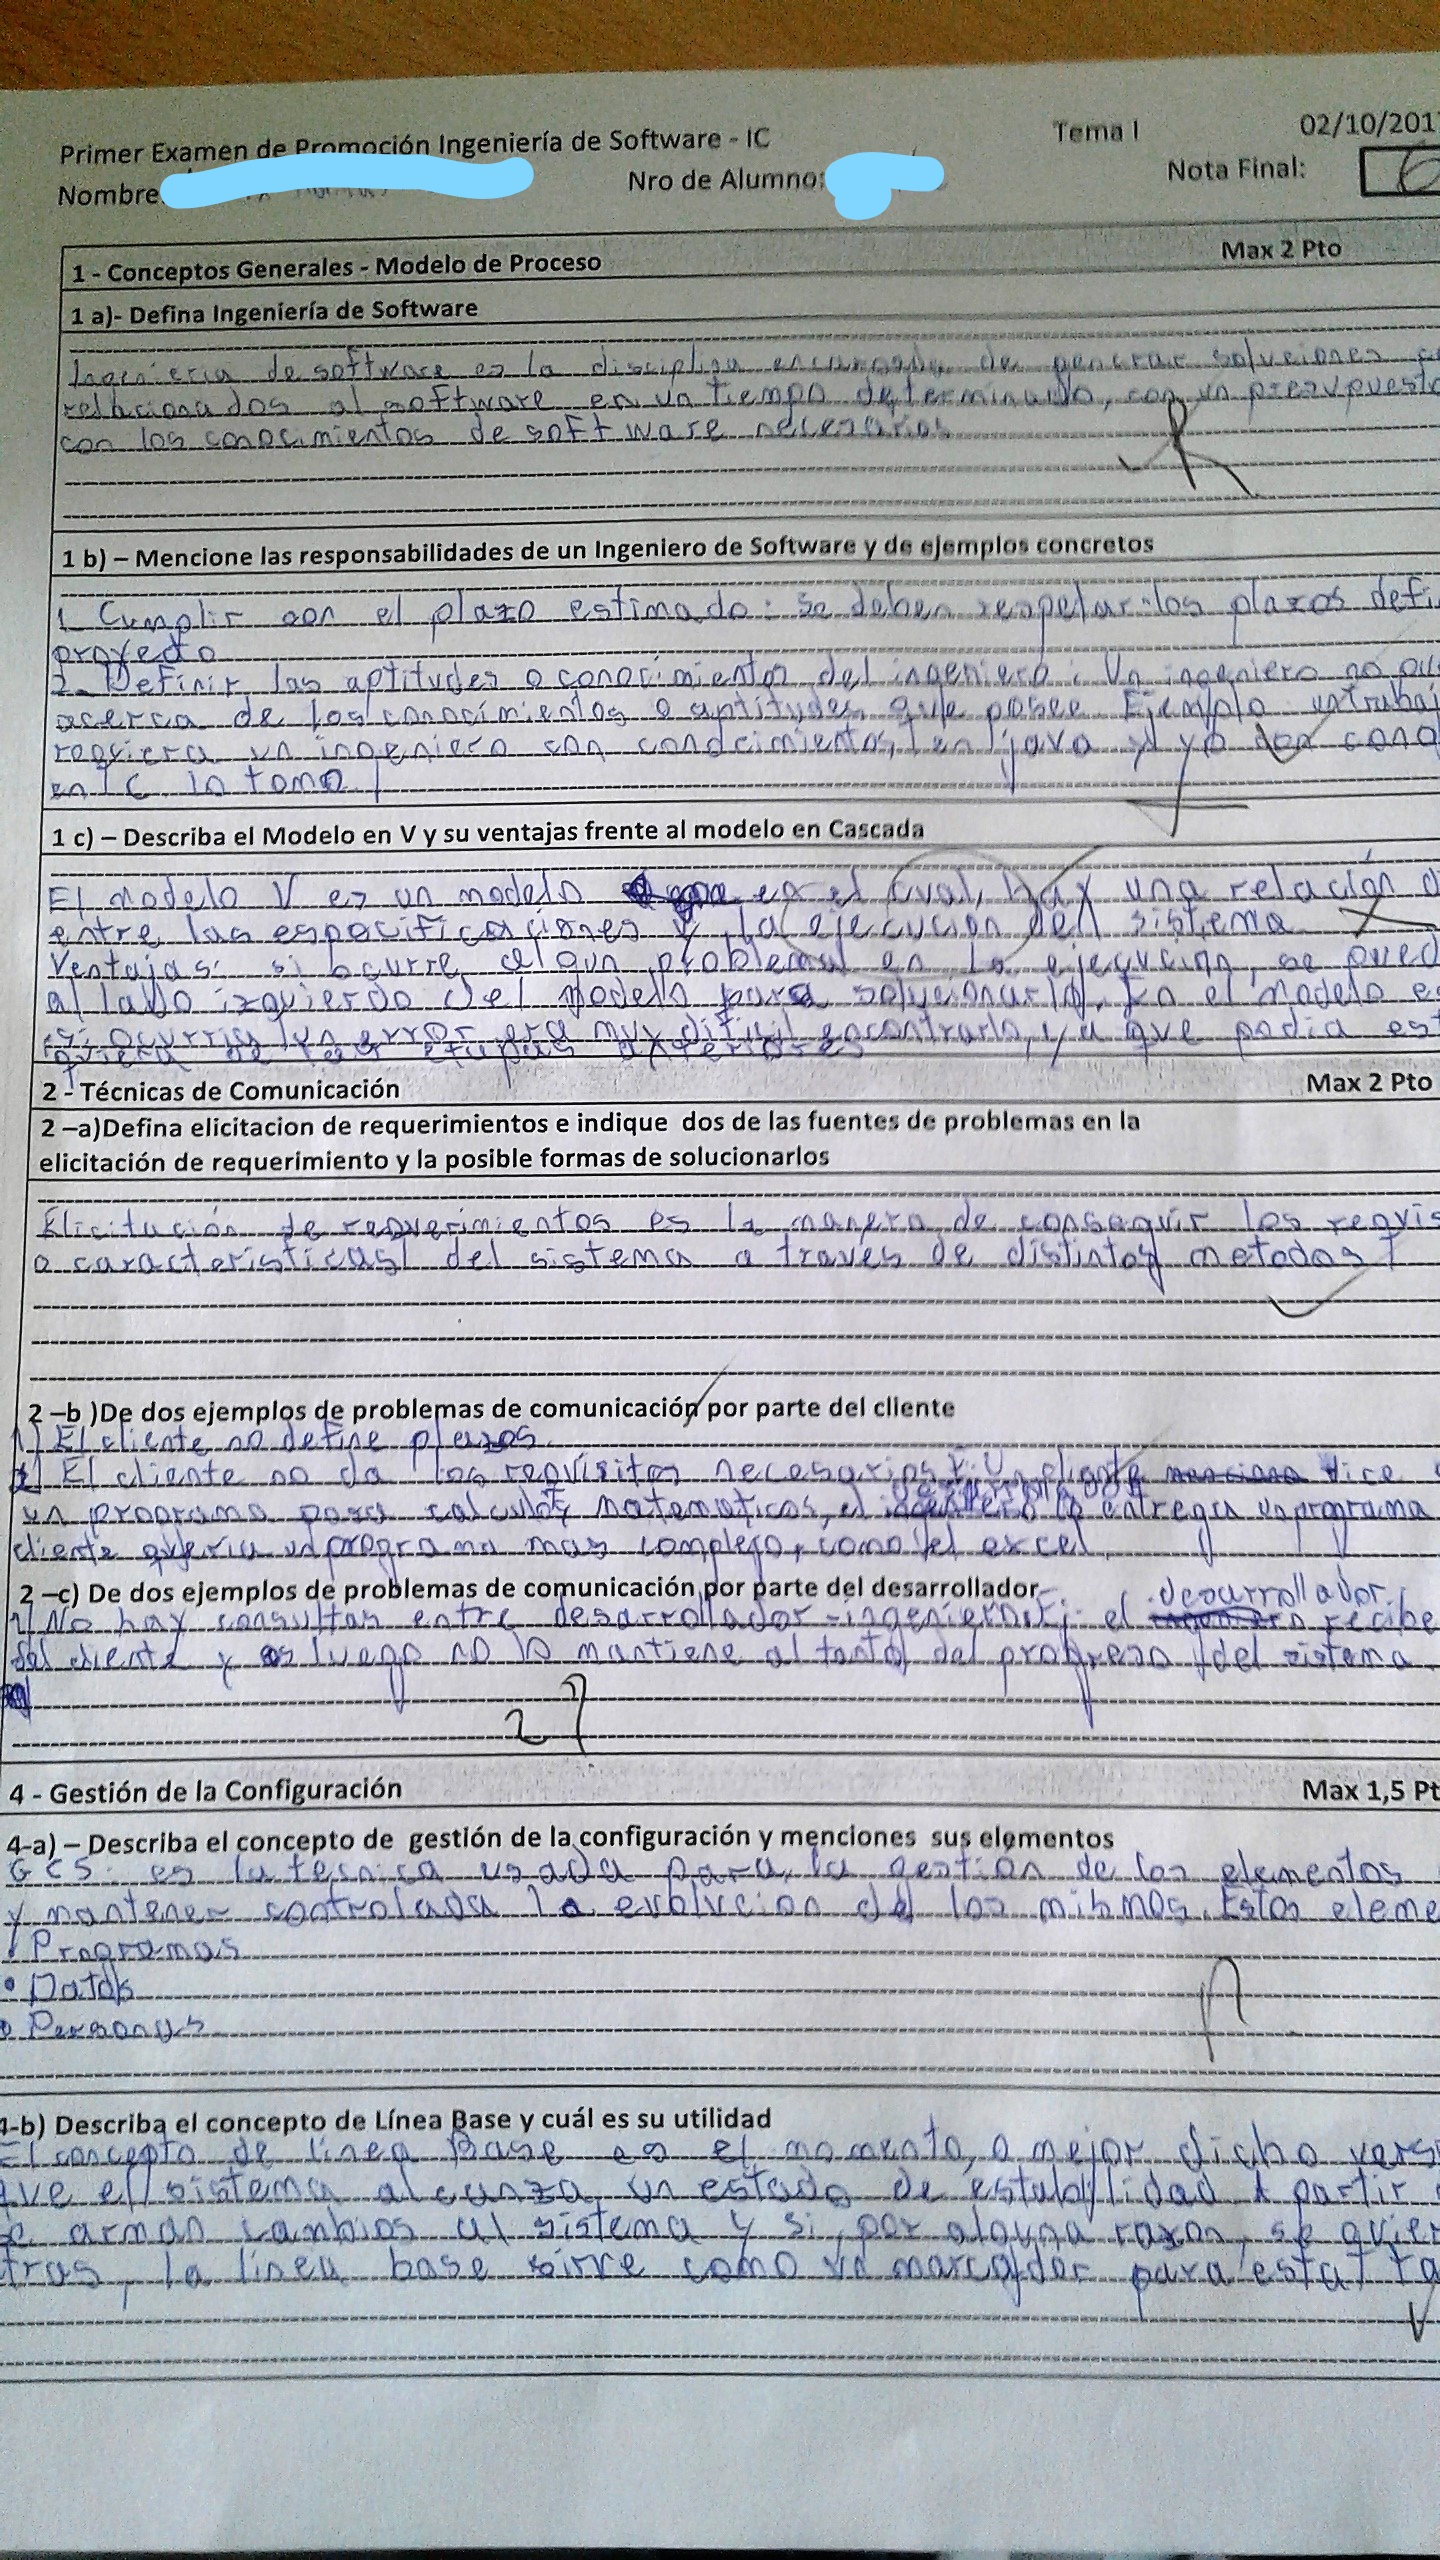 Primer Examen de Promoción Ingeniería de Software - IC
Tema I
02/10/201
Nombre
Nro de Alumno:
Nota Final:
6
1 - Conceptos Generales - Modelo de Proceso
Max 2 Pto
1 a)- Defina Ingeniería de Software
Ingenieria de software es la disciplina encargada de generar soluciones
relacionados al software en un tiempo determinado, con un presupuesto
con los conocimientos de software necesarios
R
1 b) – Mencione las responsabilidades de un Ingeniero de Software y de ejemplos concretos
1 Cumplir con el plazo estimado: se deben respetar los plazos defi
proyecto
2- Definir las aptitudes o conocimientos del ingeniero: Un ingeniero no pue
acerca de los conocimientos o aptitudes que posee Ejemplo un trabaj
requiera un ingeniero con conocimientos en java y yo con cono
en C lo tomo
1 c) – Describa el Modelo en V y su ventajas frente al modelo en Cascada
El modelo V es un modelo en el cual, hay una relación d
entre las especificaciones y la ejecucion del sistema
Ventajas: si ocurre algun problema en la ejecucion, se pued
al lado izquierdo del modelo para solucionarlo. En el modelo e
si ocurria un error era muy dificil encontrarlo, ya que podia est
de las etapas
2 - Técnicas de Comunicación
Max 2 Pto
2 –a)Defina elicitacion de requerimientos e indique dos de las fuentes de problemas en la
elicitación de requerimiento y la posible formas de solucionarlos
Elicitación de requerimientos es la manera de conseguir los requis
o caracteristicas del sistema a traves de distintos metodos
2 –b )De dos ejemplos de problemas de comunicación por parte del cliente
1) El cliente no define plazos
2) El cliente no da los requisitos necesarios Un cliente dice
un programa para calculos matematicos, el lo entrega un programa
cliente queria un programa mas complejo, como el excel
2 –c) De dos ejemplos de problemas de comunicación por parte del desarrollador
desarrollador
1) No hay consultas entre desarrollador-ingeniero el recibe
del cliente y luego no lo mantiene al tanto del progreso del sistema
2?
4 - Gestión de la Configuración
Max 1,5 Pt
4-a) – Describa el concepto de gestión de la configuración y menciones sus elementos
GCS: es la tecnica usada para la gestión de los elementos
y mantener controlada la evolucion de los mismos. Estos eleme
• Programas
• Datos
• Personas
4-b) Describa el concepto de Línea Base y cuál es su utilidad
El concepto de linea Base es el momento, o mejor dicho vers
que el sistema alcanza un estado de estabilidad A partir
se arman cambios al sistema y si por alguna razon, se quier
tras, la linea base sirve como un marcador para esta